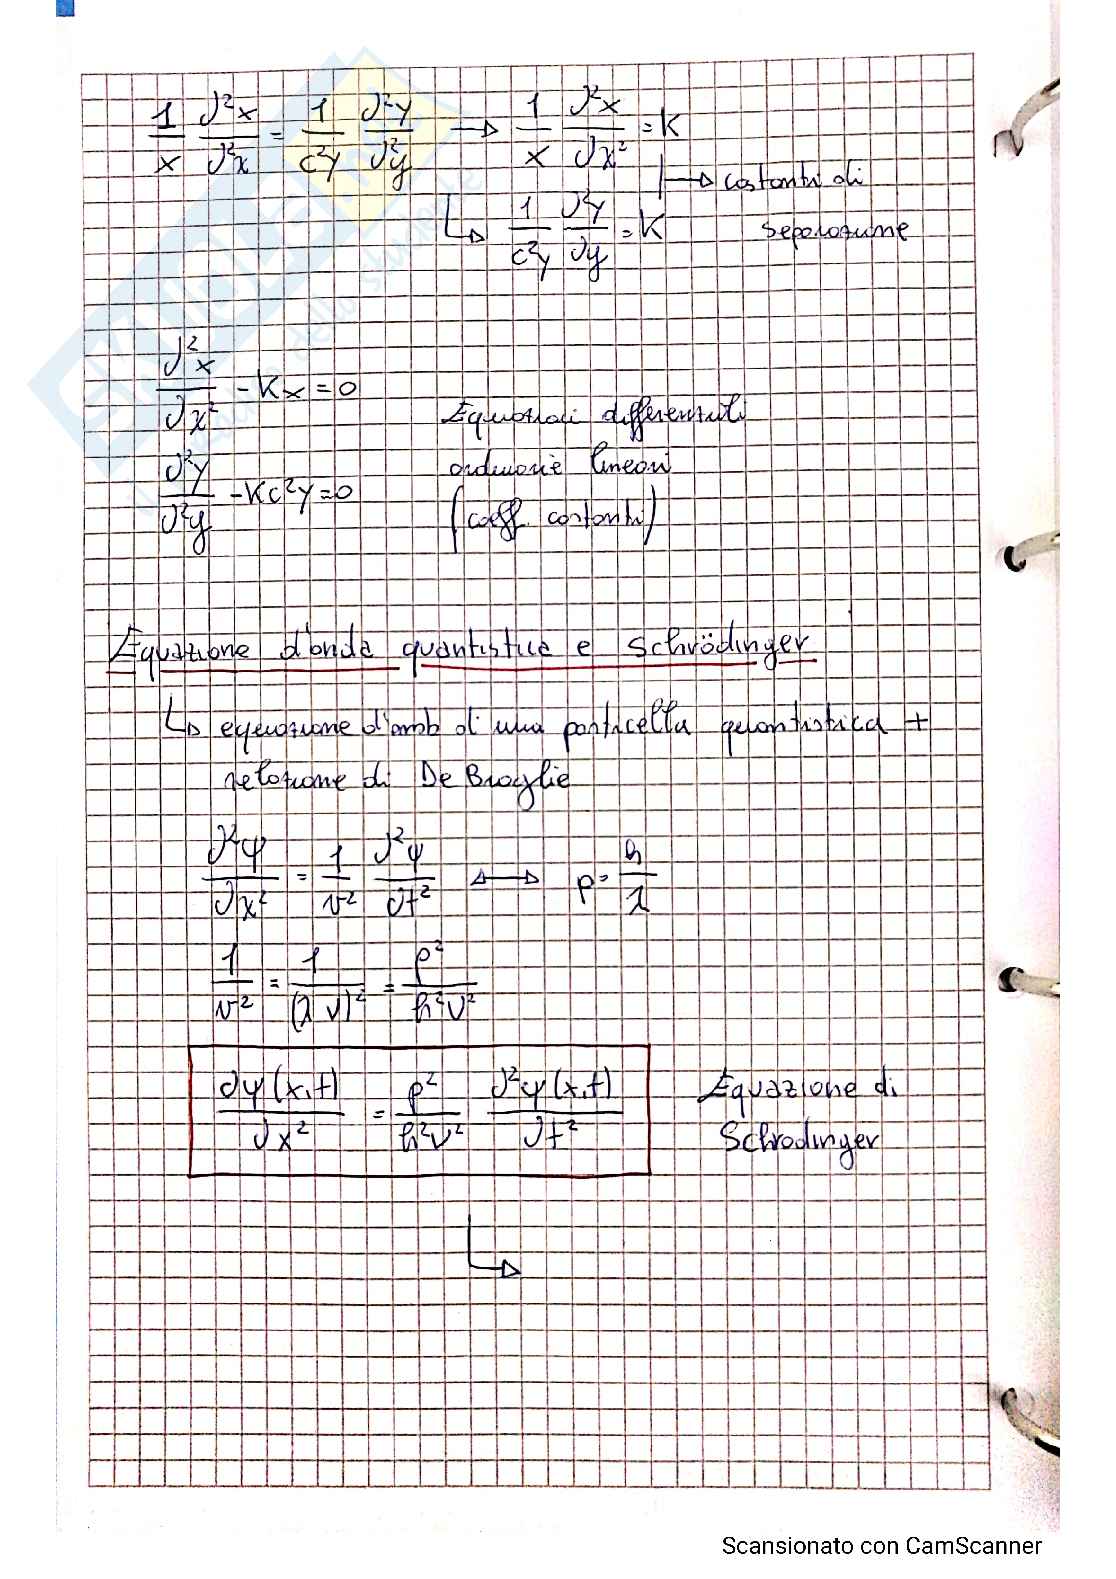 1/x ∂²x/∂²x = 1/c²y ∂²y/∂²y → 1/x ∂²x/∂x² = K
↳ costanti di
↳ 1/c²y ∂²y/∂y = K separazione
∂²x/∂x² - Kx = 0
Equazioni differenziali
ordinarie lineari
∂²y/∂²y - Kc²y = 0
(coeff costanti)
Equazione d'onda quantistica e Schrödinger
↳ equazione d'onda di una particella quantistica +
relazione di De Broglie
∂²ψ/∂x² = 1/v² ∂²ψ/∂t² ↔ p = h/λ
1/v² = 1/(λν)² = p²/h²ν²
∂ψ(x,t)/∂x² = p²/h²ν² ∂²ψ(x,t)/∂t² Equazione di
Schrodinger
Scansionato con CamScanner